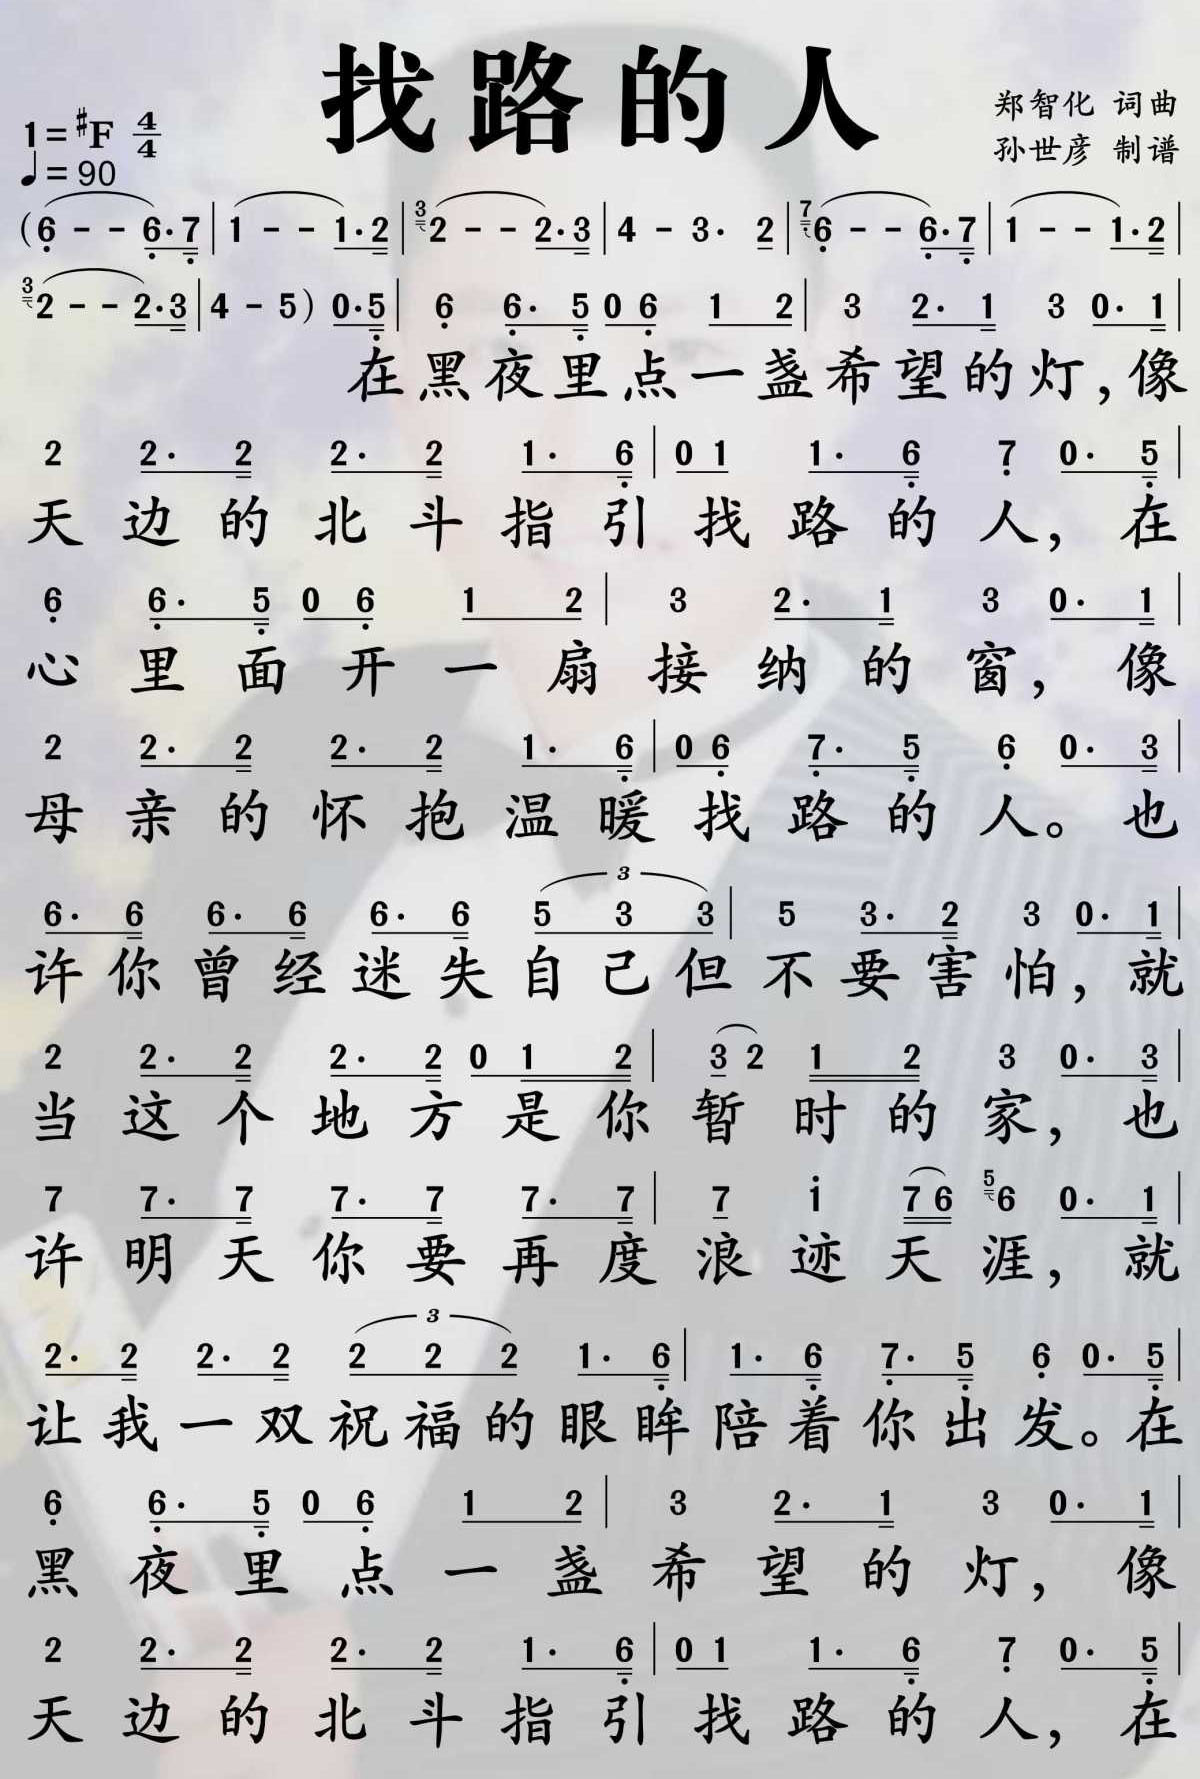 找路的人
郑智化 词曲
孙世彦 制谱
1=#F 4/4
♩=90
(6 - - 6·7|1 - - 1·2|3 2 - - 2·3|4 - 3· 2|7 6 - - 6·7|1 - - 1·2|
3 2 - - 2·3|4 - 5) 0·5|6 6· 5 0 6 1 2|3 2· 1 3 0· 1|
在黑夜里点一盏希望的灯,像
2 2· 2 2· 2 1· 6|0 1 1· 6 7 0· 5|
天边的北斗指引找路的人,在
6 6· 5 0 6 1 2|3 2· 1 3 0· 1|
心里面开一扇接纳的窗,像
2 2· 2 2· 2 1· 6|0 6 7· 5 6 0· 3|
母亲的怀抱温暖找路的人。也
3
6· 6 6· 6 6· 6 5 3 3|5 3· 2 3 0· 1|
许你曾经迷失自己但不要害怕,就
2 2· 2 2· 2 0 1 2|3 2 1 2 3 0· 3|
当这个地方是你暂时的家,也
7 7· 7 7· 7 7· 7|7 i 7 6 5 6 0· 1|
许明天你要再度浪迹天涯,就
3
2· 2 2· 2 2 2 2 1· 6|1· 6 7· 5 6 0· 5|
让我一双祝福的眼眸陪着你出发。在
6 6· 5 0 6 1 2|3 2· 1 3 0· 1|
黑夜里点一盏希望的灯,像
2 2· 2 2· 2 1· 6|0 1 1· 6 7 0· 5|
天边的北斗指引找路的人,在